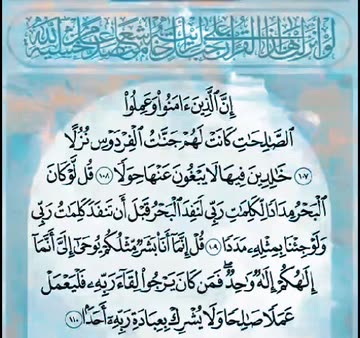 لو أنزلنا هذا القرآن على جبل لرأيته خاشعا متصدعا من خشية الله
إِنَّ ٱلَّذِينَ ءَامَنُوا۟ وَعَمِلُوا۟
ٱلصَّٰلِحَٰتِ كَانَتْ لَهُمْ جَنَّٰتُ ٱلْفِرْدَوْسِ نُزُلًا
١٠٧ خَٰلِدِينَ فِيهَا لَا يَبْغُونَ عَنْهَا حِوَلًا ١٠٨ قُل لَّوْ كَانَ
ٱلْبَحْرُ مِدَادًا لِّكَلِمَٰتِ رَبِّى لَنَفِدَ ٱلْبَحْرُ قَبْلَ أَن تَنفَدَ كَلِمَٰتُ رَبِّى
وَلَوْ جِئْنَا بِمِثْلِهِۦ مَدَدًا ١٠٩ قُلْ إِنَّمَآ أَنَا۠ بَشَرٌ مِّثْلُكُمْ يُوحَىٰٓ إِلَىَّ أَنَّمَآ
إِلَٰهُكُمْ إِلَٰهٌ وَٰحِدٌ ۖ فَمَن كَانَ يَرْجُوا۟ لِقَآءَ رَبِّهِۦ فَلْيَعْمَلْ
عَمَلًا صَٰلِحًا وَلَا يُشْرِكْ بِعِبَادَةِ رَبِّهِۦٓ أَحَدًۢا ١١٠